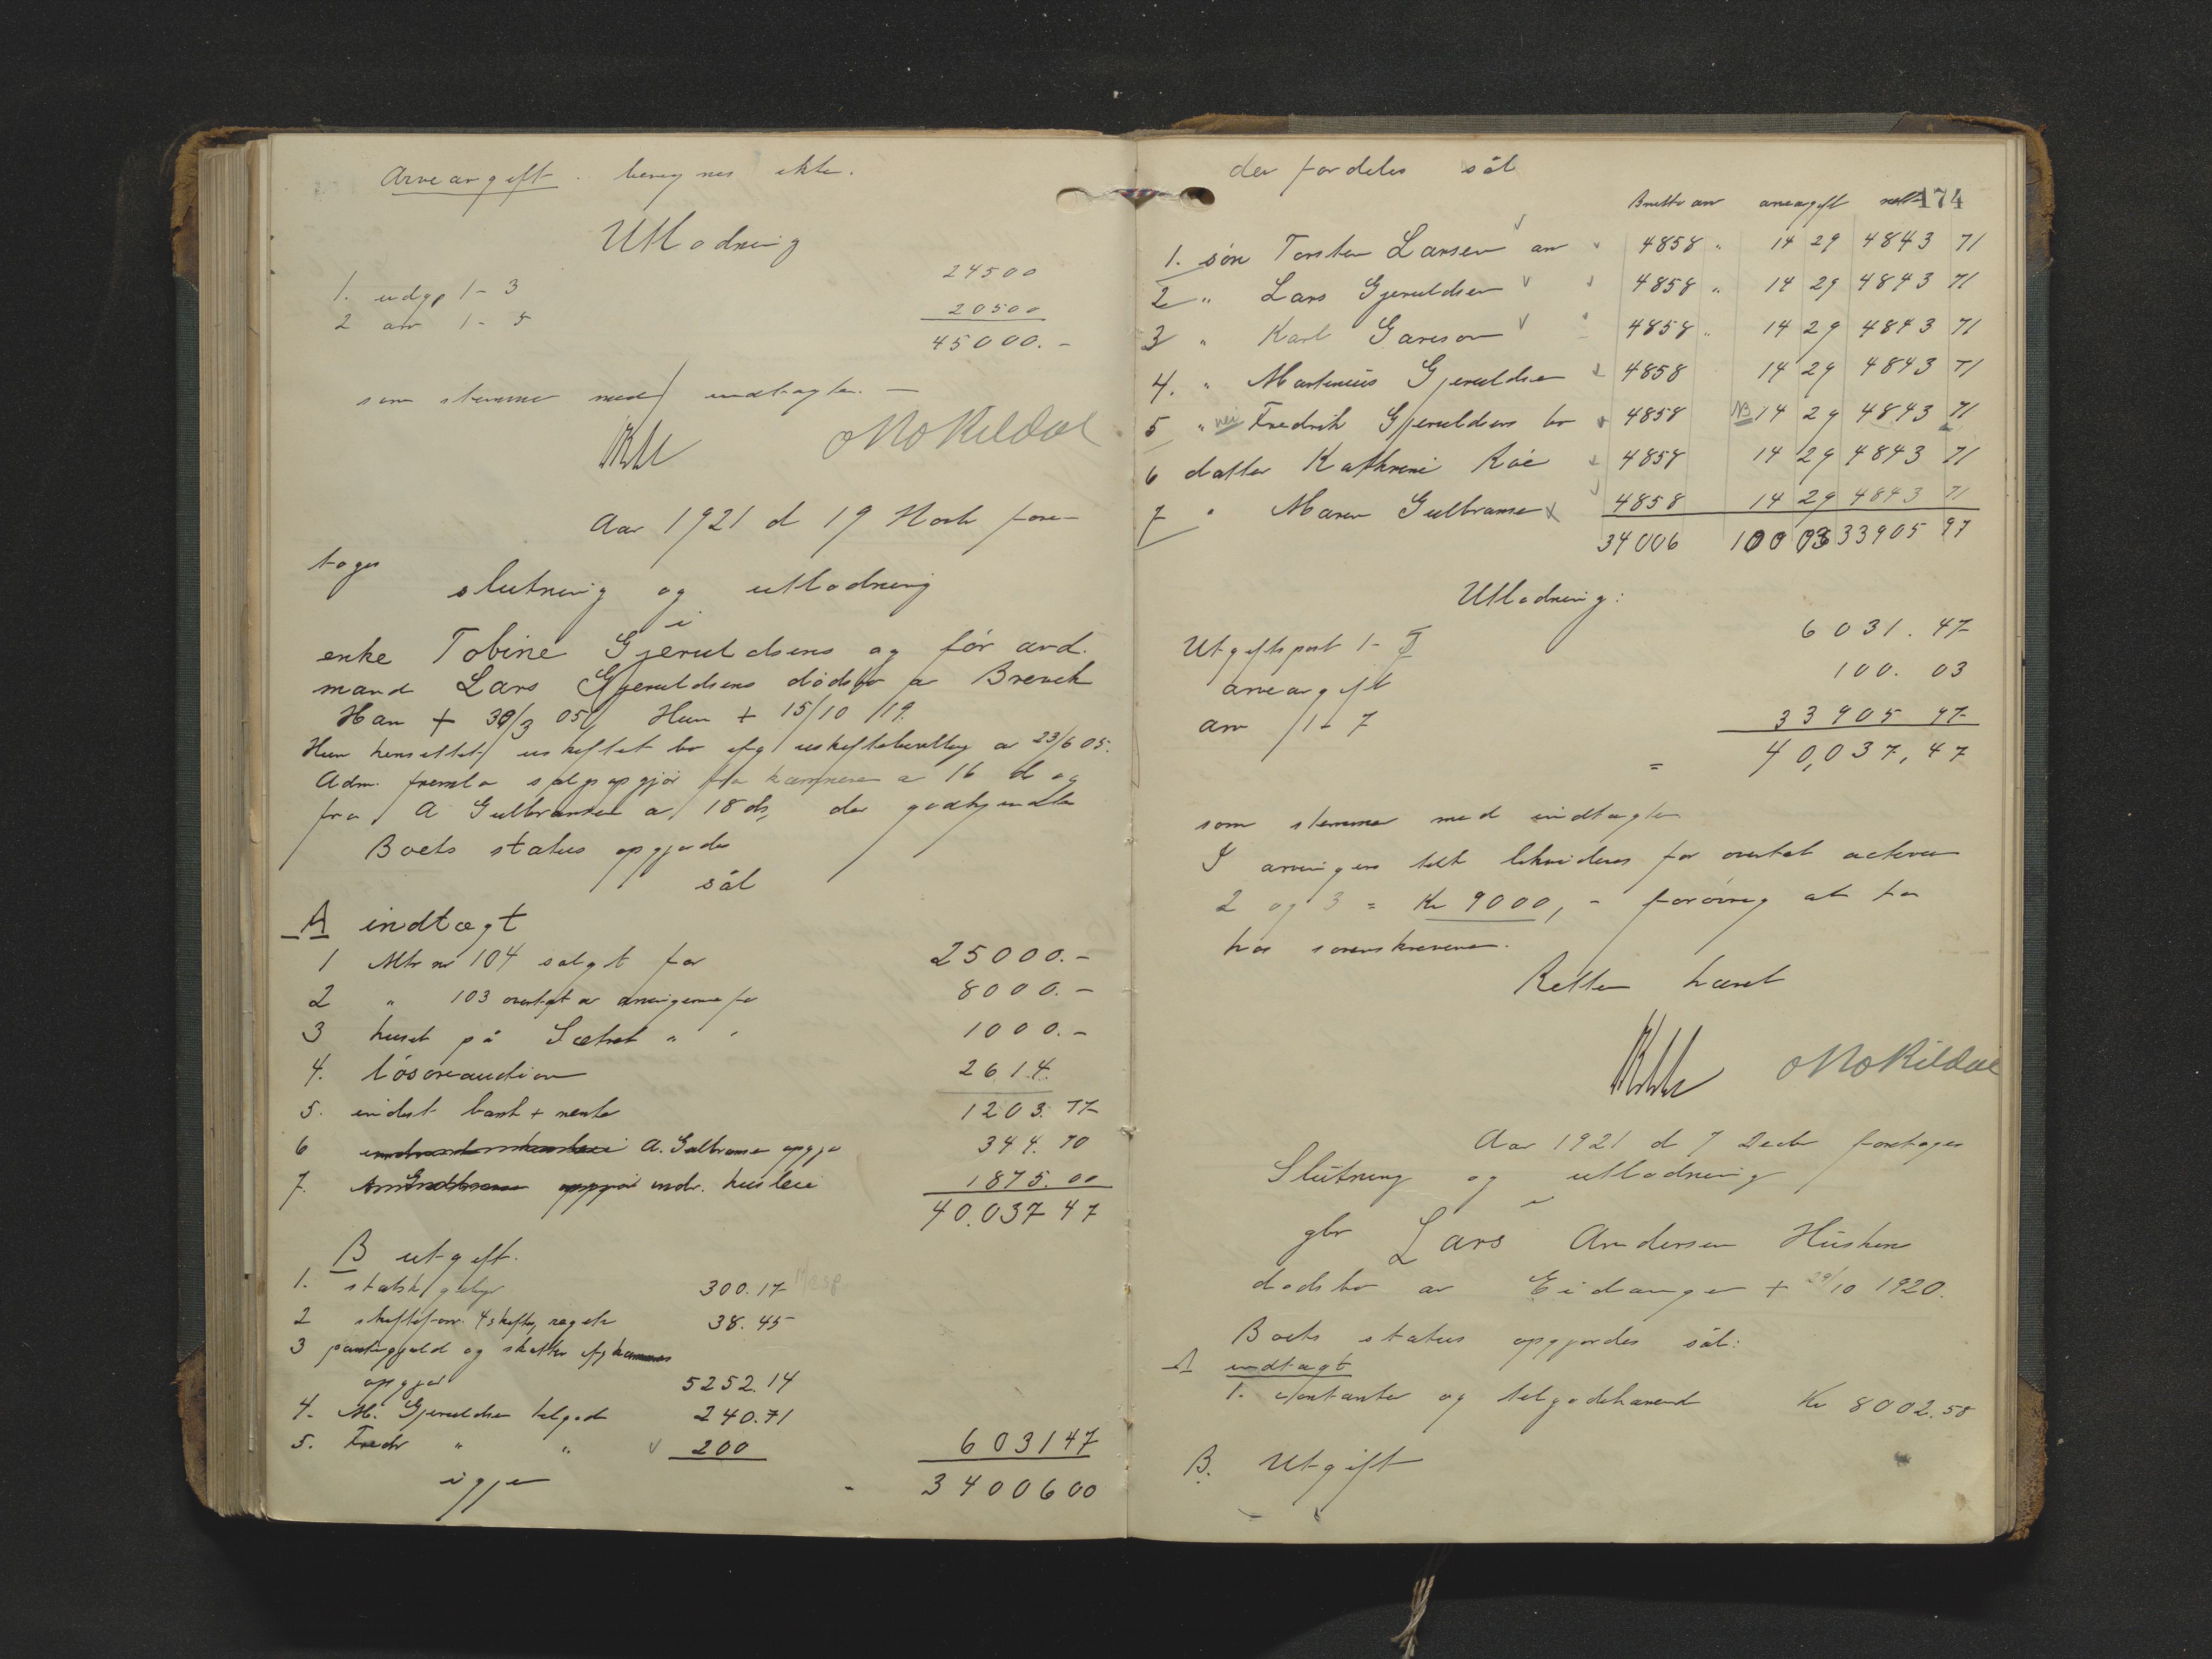 Arveavgift beregnes ikke.
Utlodning
1. udgp 1-3 24500
2 arv 1-5 20500
45000.-
som stemmer med indtægten. -
Aar 1921 d 19 Novb fore-
tages
slutning og utlodning
i
enke Tobine Gjeruldsens og før avd.
mand Lars Gjeruldsens dødsbo av Brevik
Han + 30/3 05, Hun + 15/10 19.
Hun hensittet i uskiftet bo ifg uskiftebevilling av 23/6 05.
Adm. fremla salgsopgjør fra kæmneren av 16 ds og
fra A Gulbransen av 18 ds, der godkjendtes
Boets status opgjordes
sål
A indtægt
1 Mtr nr 104 solgt for 25000.-
2 " 103 overtat av arvingerne for 8000.-
3 huset på Sætret " " 1000.-
4. løsøreauction 2614.
5. indest. bank + rente 1203.77
6 A. Gulbransen opgjør 344.70
7. indr. husleie 1875.00
40.037 47
B utgift.
1. statsk gebyr 300.17
2 skifteforv. 4 skifter, regsk 38.45
3 pantegjæld og skatter ifg
opgjør 5252.14
4. M. Gjeruldsen tilgode 240.71
5. Fredr " " 200 6031 47
igjen - 34006 00
der fordeles sål
174
Brutto arv arveavgift netto
1. søn Torsten Larsen arv 4858 " 14 29 4843 71
2 " Lars Gjeruldsen 4858 " 14 29 4843 71
3 " Karl Gareson 4858 " 14 29 4843 71
4. " Martinius Gjeruldsen 4858 14 29 4843 71
5 " Fredrik Gjeruldsens bo 4858 NB 14 29 4843 71
6 datter Kathrine Róe 4858 14 29 4843 71
7 " Maren Gulbransen 4858 14 29 4843 71
34006 100 03 33905 97
Utlodning:
Utgiftspost 1-5 6031.47
arveavgift 100.03
arv 1-7 33905 97
= 40,037,47
som stemmer med indtægten
I arvingens lodd likvideres for overtat activa
2 og 3 = Kr 9000,- forøvrig at ta
hos sorenskriveren.
Retten hævet
Aar 1921 d 7 Decb foretages
Slutning og utlodning
i
gbr Lars Andersen Húsken
dødsbo av Eidanger + 29/10 1920.
Boets status opgjordes sål:
A indtægt
1. contanter og tilgodehavend Kr 8002.58
B. Utgift